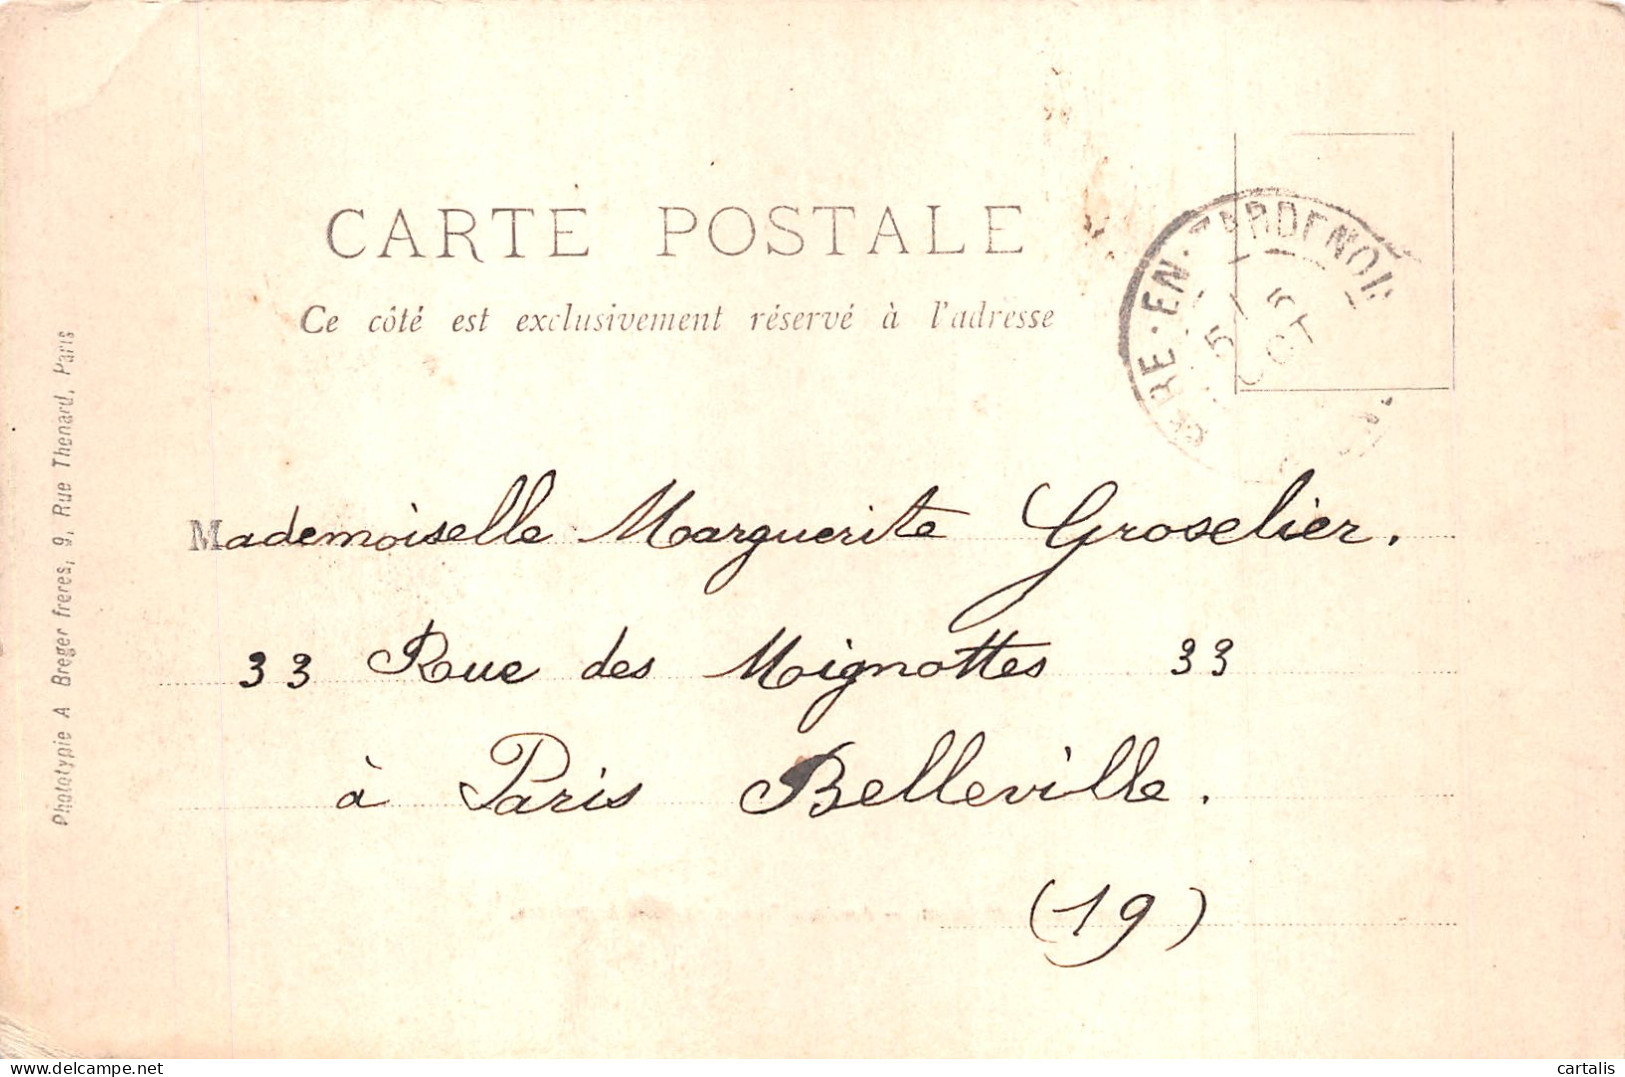 CARTE POSTALE
Ce côté est exclusivement réservé à l'adresse
RE · EN · TARDENOIS
5
OCT
Mademoiselle Marguerite Groselier.
33 Rue des Mignottes 33
à Paris Belleville.
(19)
Phototypie A Breger freres, 9, Rue Thenard, Paris
cartalis
delcampe.net